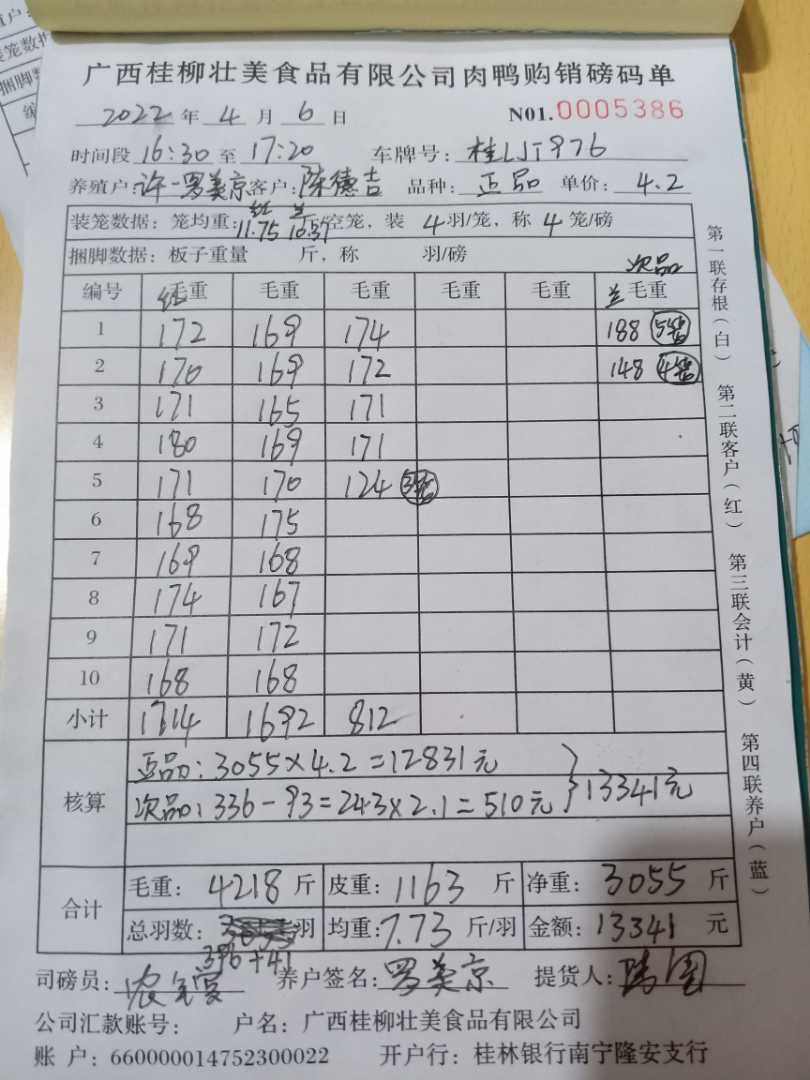 广西桂柳壮美食品有限公司肉鸭购销磅码单
2022 年 4 月 6 日 N01.0005386
时间段 16:30 至 17:20 车牌号:
养殖户: 许一罗美京 客户: 陈德吉 品种: 正品 单价: 4.2
装笼数据: 笼均重: 红11.75 兰10.37 斤/空笼, 装 4 羽/笼, 称 4 笼/磅
捆脚数据: 板子重量 斤, 称 羽/磅
次品
编号 红毛重 毛重 毛重 毛重 毛重 兰毛重
1 172 169 174 188 5笼
2 170 169 172 148 4笼
3 171 165 171
4 180 169 171
5 171 170 124 3笼
6 168 175
7 169 168
8 174 167
9 171 172
10 168 168
小计 1714 1692 812
核算
正品: 3055×4.2=12831元
次品: 336-93=243×2.1=510元 }13341元
合计
毛重: 4218 斤 皮重: 1163 斤 净重: 3055 斤
总羽数: 羽 均重: 7.73 斤/羽 金额: 13341 元
396+41
司磅员: 养户签名: 罗美京 提货人:
公司汇款账号: 户名: 广西桂柳壮美食品有限公司
账 户: 660000014752300022 开户行: 桂林银行南宁隆安支行
第一联存根(白) 第二联客户(红) 第三联会计(黄) 第四联养户(蓝)